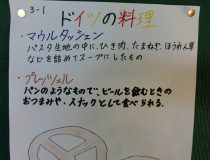 3-1
ドイツの料理
・マウルタッシェン
パスタ生地の中に、ひき肉、たまねぎ、ほうれん草
などを詰めてスープにしたもの
・プレッツェル
パンのようなもので、ビールを飲むときの
おつまみや、スナックとして食べられる。